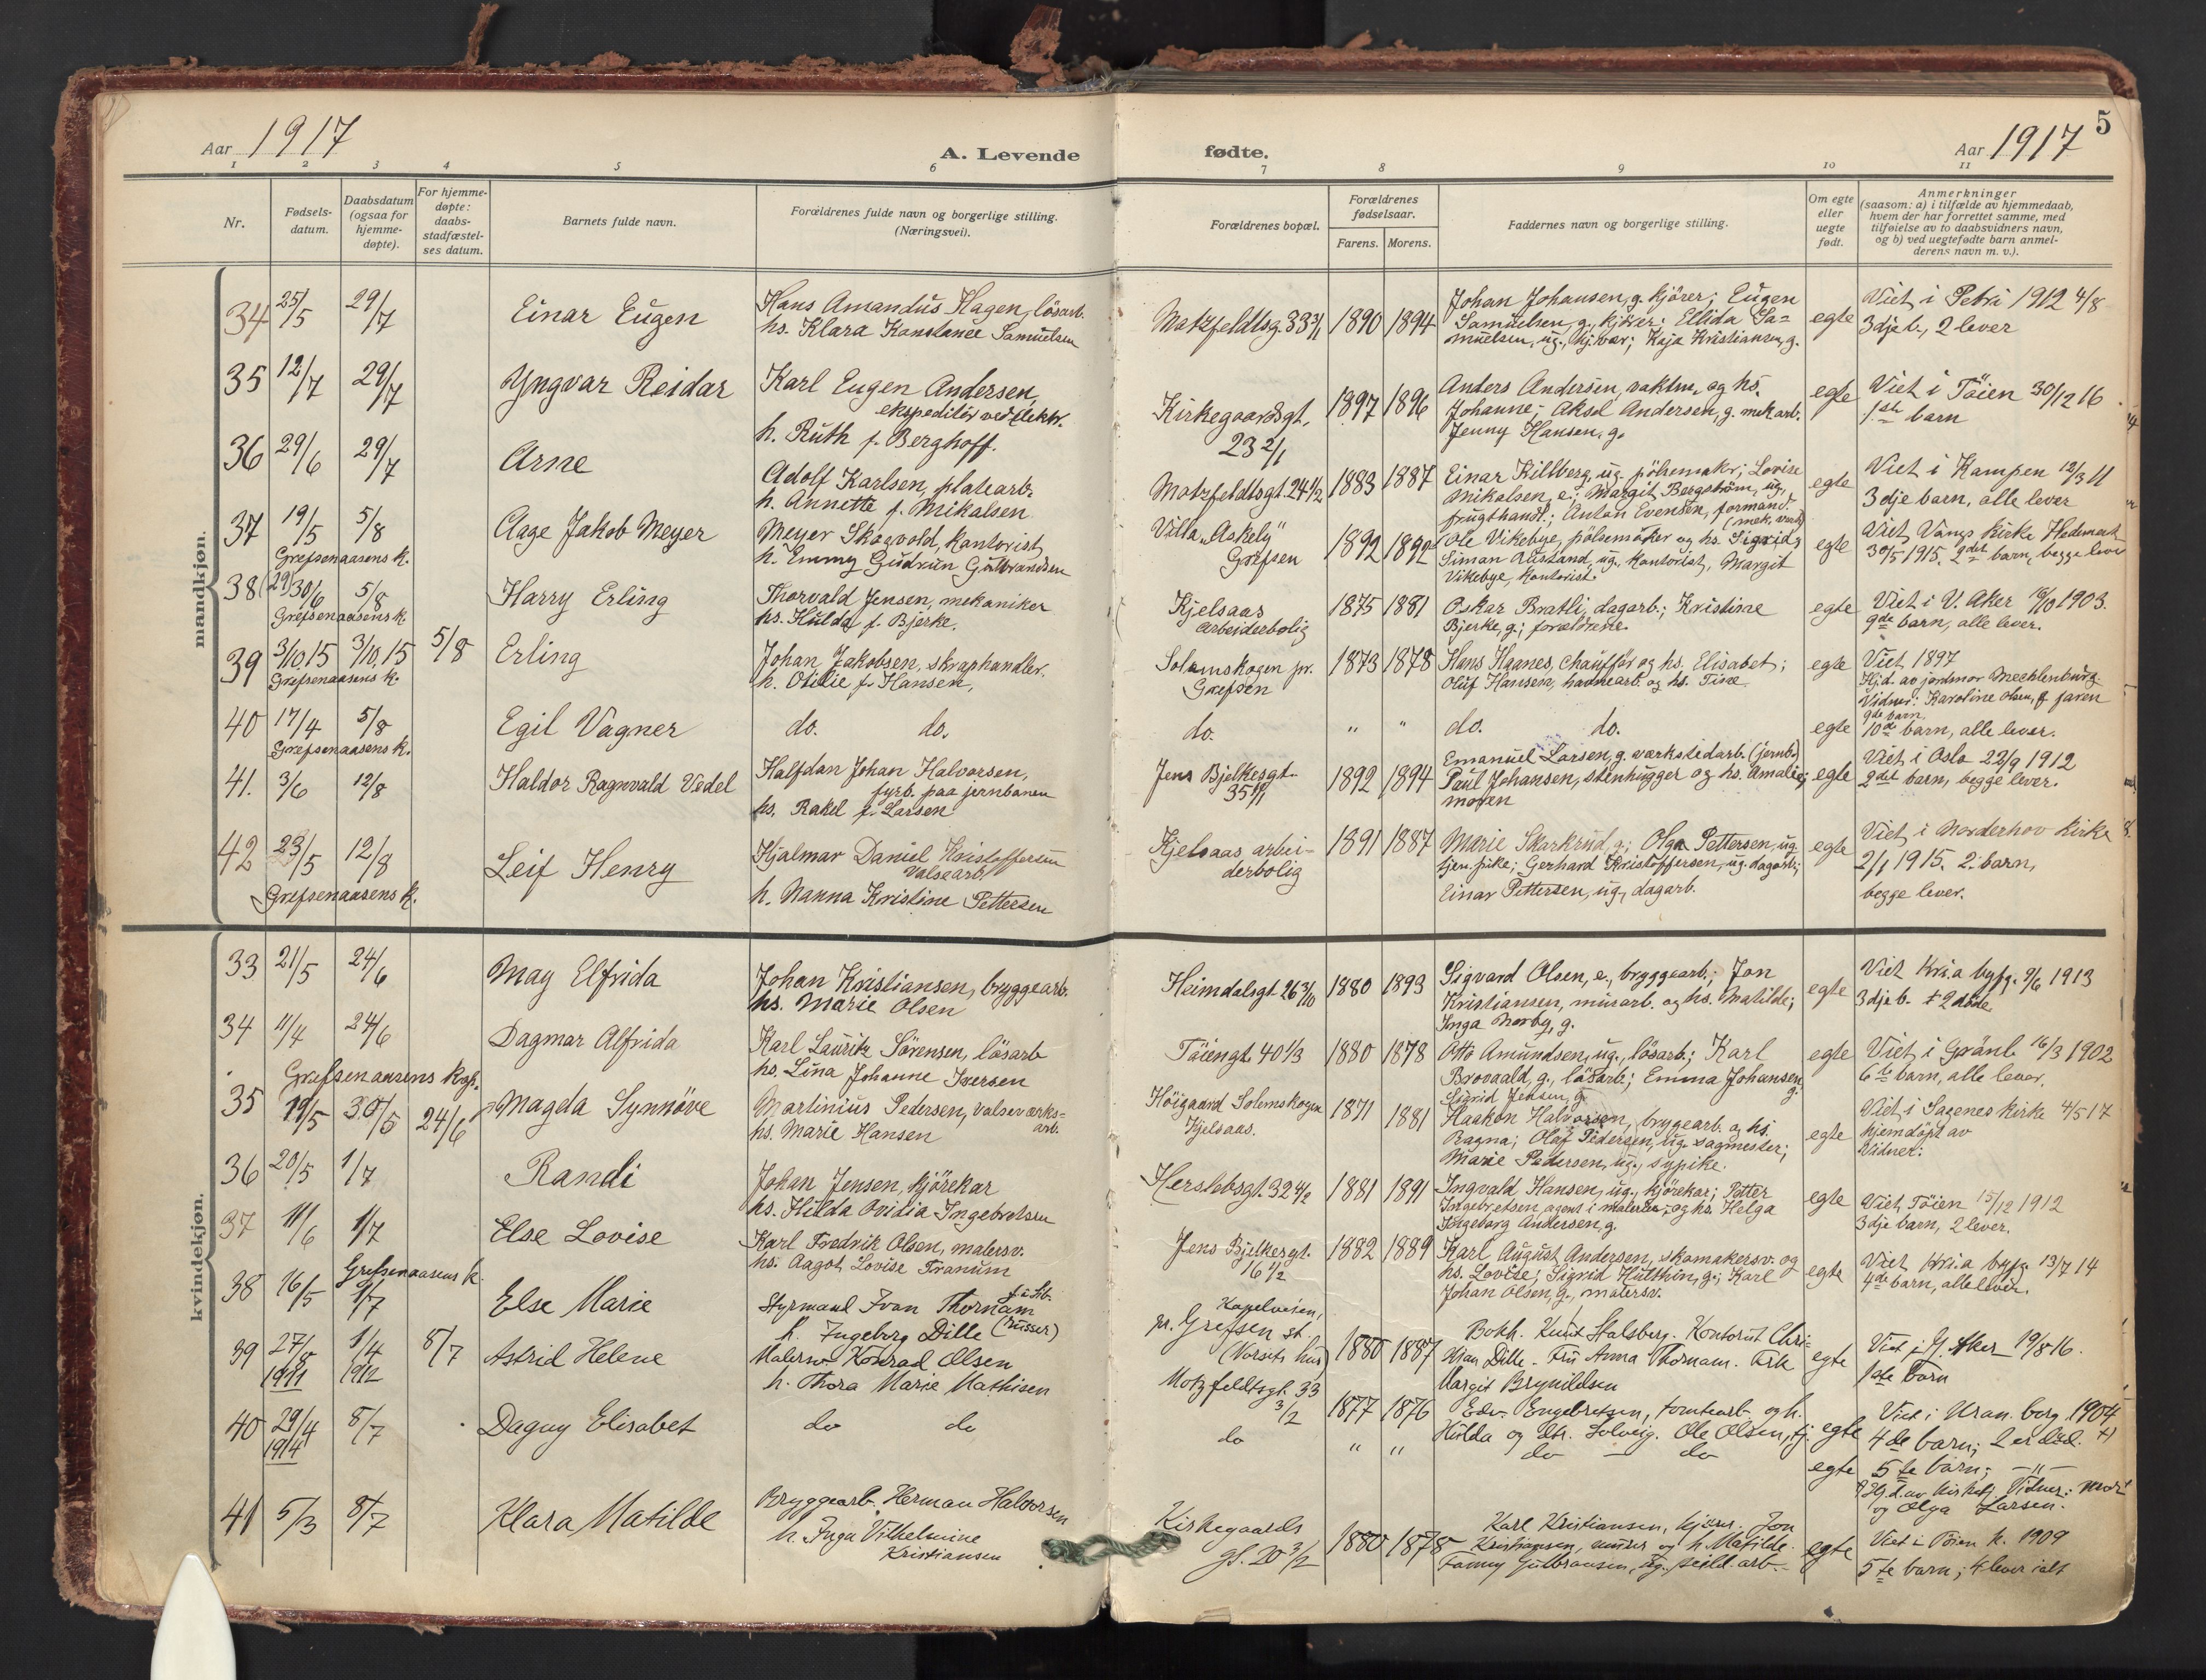 5
Aar 1917
A. Levende
fødte.
Aar 1917
1 2 3 4 5 6 7 8 9 10 11
Nr.
Fødsels-
datum.
Daabsdatum
(ogsaa for
hjemme-
døpte).
For hjemme-
døpte:
daabs-
stadfæstel-
ses datum.
Barnets fulde navn.
Forældrenes fulde navn og borgerlige stilling.
(Næringsvei).
Forældrenes bopæl.
Forældrenes
fødselsaar.
Farens. Morens.
Faddernes navn og borgerlige stilling.
Om egte
eller
uegte
født.
Anmerkninger
(saasom: a) i tilfælde av hjemmedaab,
hvem der har forrettet samme, med
tilføielse av to daabsvidners navn,
og b) ved uegtefødte barn anmel-
derens navn m. v.).
mandkjøn.
34 25/5 29/7 Einar Eugen
Hans Amandus Hagen, lösarb.
hs. Klara Konstance Samuelsen
Motzfeldtsg. 33 3/1 1890 1894
Johan Johansen, g. kjörer; Eugen
Samuelsen, g., kjörer; Ellida Sa=
muelsen, ug., hj. vær; Kaja Kristiansen, g.
egte
Viet i Petri 1912 4/8
3dje b., 2 lever
35 12/7 29/7 Yngvar Reidar
Karl Eugen Andersen,
ekspeditör ved elektr.
h. Ruth f. Berghoff.
Kirkegaardsgt.
23 2/1
1897 1896
Anders Andersen, vaktm. og hs.
Johanne; Aksel Andersen, g. mek arb.
Jenny Hansen, g.
egte
Viet i Töien 30/12 16
1ste barn
36 29/6 29/7 Arne
Adolf Karlsen, platearb.
h. Annette f. Mikalsen
Motzfeldtsgt. 24 1/2 1883 1887
Einar Killberg, ug. pölsemakr; Lovise
Mikalsen, e; Margit Bergström, ug.,
frugthandl.; Anton Evensen, formand
(mek. verk)
egte
Viet i Kampen 12/3 11
3dje barn, alle lever
37 19/5 5/8 Aage Jakob Meyer
Grefsenaasens k.
Meyer Skogvold, kontorist
h. Emmy Gudrun Gulbrandsen
Villa "Askely"
Grefsen
1892 1892
Ole Vikebye, pölsemaker og hs. Sigrid;
Simon Austand, ug., kontorist, Margit
Vikebye, kontorist.
egte
Viet Vangs kirke Hedemark
30/5 1915. 2det barn, begge lever
38 (29) 30/6 5/8 Harry Erling
Grefsenaasens k.
Thorvald Jensen, mekaniker
hs. Hulda f. Bjerke.
Kjelsaas
arbeiderbolig
1875 1881
Oskar Bratli, dagarb.; Kristine
Bjerke, g.; forældrene.
egte
Viet i V. Aker 1903.
9de barn, alle lever.
39 3/10,15 3/10,15 5/8 Erling
Grefsenaasens k.
Johan Jakobsen, skraphandler.
h. Otilie f. Hansen,
Solemskogen pr.
Grefsen
1873 1878
Hans Haanes, chauffør og hs. Elisabet;
Oluf Hansen, havnearb. og hs. Tine
egte
Viet 1897
Hjd. av jordmor Mecklenburg
Vidner: Karoline Olsen, & faren
9de barn.
40 17/4 5/8 Egil Vagner
Grefsenaasens k.
do. do.
do. " "
do. do.
egte 10de barn, alle lever.
41. 3/6 12/8 Haldor Ragnvald Vedel
Halfdan Johan Halvorsen,
fyrb. paa jernbanen
hs. Rakel f. Larsen
Jens Bjelkesgt.
1892 1894
Emanuel Larsen, g. værkstedarb. (jernb.)
Paul Johansen, stenhugger og hs. Amalie;
moren
egte
Viet i Oslo 22/9 1912
2det barn, begge lever.
42 23/5 12/8 Leif Henry
Grefsenaasens k.
Hjalmar Daniel Kristoffersen
valsearb
h. Nanna Kristine Pettersen
Kjelsaas arbei-
derbolig
1891 1887
Marie Skarkrud, g.; Olga Pettersen, ug.
tjen. pike; Gerhard Kristoffersen, ug. dagarb;
Einar Pettersen, ug., dagarb.
egte
Viet i Norderhov Kirke
2/1 1915. 2. barn,
begge lever.
kvindekjøn.
33 21/5 24/6 May Elfrida
Johan Kristiansen, bryggearb.
hs. Marie Olsen
Heimdalsgt. 26 1880 1893
Sigvard Olsen, e., bryggearb.; Jon
Kristiansen, murarb. og hs. Matilde;
Inga Norby, g.
egte
Viet Kr.a byfg. 9/6 1913
3dje b. + 2 döde
34 11/4 24/6 Dagmar Alfrida
Karl Lauritz Sörensen, lösarb
hs. Lina Johanne Iversen
Töiengt. 40 1/3 1880 1878
Otto Amundsen, ug., lösarb.; Karl
Brovaald, g., lösarb.; Emma Johansen
g.
Sigrid Jensen, g.
egte
Viet i Grönl. 16/3 1902
6te barn, alle lever.
Grefsenaasens kap.
35 19/5 30/5 24/6 Magda Synnöve
Martinius Pedersen, valseværks=
arb.
hs. Marie Hansen
Höigaard Solemskogen
Kjelsaas.
1871 1881
Haakon Halvorsen, bryggearb. og hs.
Ragna; Olaf Pedersen, ug. sagmester;
Marie Pedersen, ug., sypike.
egte
Viet i Sagenes kirke 4/5 17
hjemdöpt av
Vidner:
36 20/5 1/7 Randi
Johan Jensen, kjörekar
hs. Hilda Ovidia Ingebretsen
Herslebsgt. 32 4/2 1881 1891
Ingvald Hansen, ug., kjörekar; Petter
Ingebretsen, agent i malerier, og hs. Helga
Ingeborg Andersen, g.
egte
Viet Töien 15/12 1912
3dje barn, 2 lever.
37 11/6 1/7 Else Lovise
Karl Fredrik Olsen, malersv.
hs. Aagot Lovise Tranum
Jens Bjelkesgt.
16 1/2
1882 1889
Karl August Andersen, skomakersv. og
hs. Lovise; Sigrid Hulthin, g.; Karl
Johan Olsen, g., malersv.
egte
Viet Kr.a byfg. 13/7 14
4de barn, alle lever.
Grefsenaasens k.
38 16/5 1/7 Else Marie
Styrmand Ivan Thornam
(russer)
h. Ingeborg Dille
Kapelveien,
pr. Grefsen st.
(Vorsets hus)
1880 1887
Bokh. Knut Stalsberg. Kontorist Chri-
stian Dille. Fru Anna Thornam. Frk
Margit Brynildsen
egte
Viet i V. Aker 19/8 16.
1ste barn
39 27/8 1911 1/4 1912 8/7 Astrid Helene
Malersv. Konrad Olsen
h. Thora Marie Mathisen
Motzfeldtsgt. 33
3/2
1877 1876
Edv. Engebretsen, tomtearb. og h.
Hulda og dtr. Solveig. Ole Olsen, tj.
egte
Viet i Uran. borg 1904
4de barn; 2 er död. +)
40 29/4 1914 8/7 Dagny Elisabet
do do
do " "
do — do
egte
5te barn; —"—
Vidner: mor
og Olga Larsen.
41 5/3 8/7 Klara Matilde
Bryggearb. Herman Halvorsen
h. Inga Vilhelmine
Kristiansen
Kirkegaards
gt. 20 3/2
1880 1878
Karl Kristiansen, kjörer. Jon
Kristiansen, murer og h. Matilde.
Fanny Gulbransen, ug. seild. arb.
egte
Viet i Töien k. 1909
5te barn; 4 lever ialt